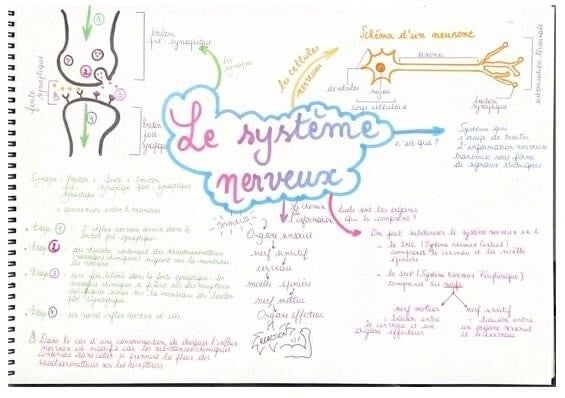 Le système
nerveux
les synapses
les cellules
nerveuses
Schéma d'un neurone
axone
dendrites
noyau
corps cellulaire
bouton
synaptique
arborisation terminale
bouton
pré-synaptique
fente synaptique
bouton
post-
synaptique
1
2
3
4
c'est quoi ?
Système qui
s'occupe de traiter
l'information nerveuse
transmise sous forme
de signaux électriques
Synapse = bouton + fente + bouton
pré-synaptique synaptique post-synaptique
= connexion entre 2 neurones
Etape 1 : l'influx nerveux arrive dans le
bouton pré-synaptique
Etape 2 : des vésicules contenant des neurotransmetteurs
(messagers chimiques) migrent vers la membrane
du neurone
Etape 3 :
Etape 4 : un nouvel influx nerveux est créé
Dans le cas d'une consommation de drogues l'influx
nerveux est modifié car les substances chimiques
contenues dans celle-ci prennent la place des
neurotransmetteurs sur les récepteurs
Stimulus
Le chemin
de
l'information
Organe sensoriel
nerf sensitif
cerveau
moelle épinière
nerf moteur
Organe effecteur
REACTION
Quels sont les organes
qui le composent ?
On peut subdiviser le système nerveux en 2
- le SNC (Système Nerveux Central)
comprenant le cerveau et la moelle
épinière
- le SNP (Système Nerveux Périphérique)
comprenant les nerfs
nerf moteur
= liaison entre
le cerveau et un
organe effecteur
nerf sensitif
= liaison entre
un organe sensoriel
et le cerveau